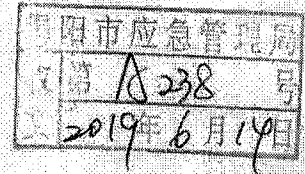 阳市应急管理局
收 第 A238 号
文 2019年6月14日